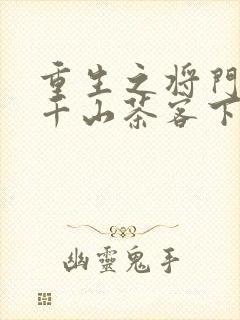 重生之将門
千山茶客下
幽靈鬼手